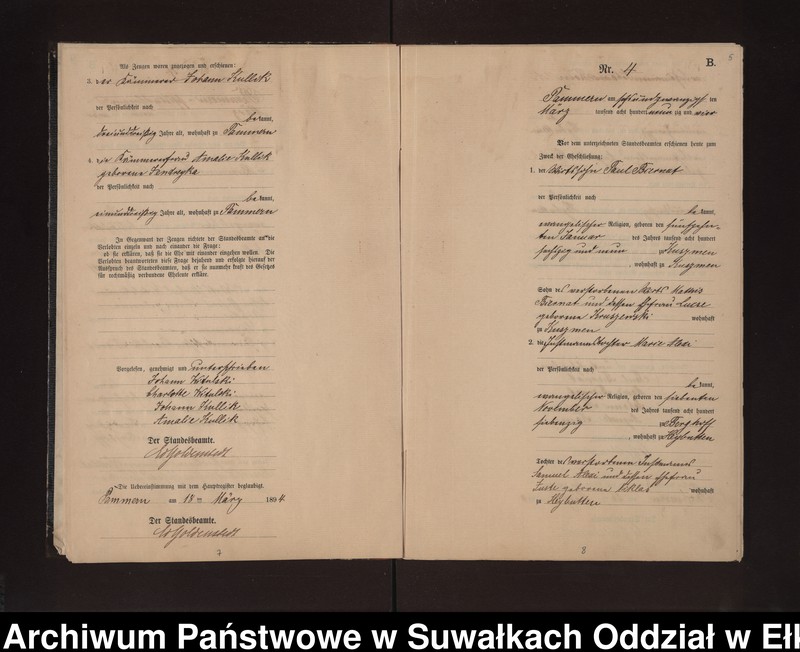 Als Zeugen waren zugezogen und erschienen:
3. der Kämmerer Johann Kullik
der Persönlichkeit nach
bekannt,
dreiunddreißig Jahre alt, wohnhaft zu Pammern
4. die Kämmererfrau Amalie Kullik
geborene
der Persönlichkeit nach
bekannt,
einunddreißig Jahre alt, wohnhaft zu Pammern
In Gegenwart der Zeugen richtete der Standesbeamte an die
Verlobten einzeln und nach einander die Frage:
ob sie erklären, daß sie die Ehe mit einander eingehen wollen. Die
Verlobten beantworteten diese Frage bejahend und erfolgte hierauf der
Ausspruch des Standesbeamten, daß er sie nunmehr kraft des Gesetzes
für rechtmäßig verbundene Eheleute erkläre.
Vorgelesen, genehmigt und unterschrieben
Johann
Charlotte
Johann Kullik
Amalie Kullik
Der Standesbeamte.
Die Uebereinstimmung mit dem Hauptregister beglaubigt.
Pammern am 18ten März 1894
Der Standesbeamte.
7
Nr. 4
B.
Pammern am sechsundzwanzigsten
März tausend acht hundert neunzig und vier
Vor dem unterzeichneten Standesbeamten erschienen heute zum
Zweck der Eheschließung:
1. der Wirtssohn Paul Bernat
der Persönlichkeit nach
bekannt,
evangelischer Religion, geboren den fünfzehn-
ten Januar des Jahres tausend acht hundert
sechszig und neun zu Kuszmen
, wohnhaft zu Kuszmen
Sohn des verstorbenen Wirts Mathis
Bernat und dessen Ehefrau Luise
geborene Kruszewski wohnhaft
zu Kuszmen
2. die Instmannstochter Marie
der Persönlichkeit nach
bekannt,
evangelischer Religion, geboren den siebenten
November des Jahres tausend acht hundert
siebenzig zu Berghoff
, wohnhaft zu Heybutten
Tochter des verstorbenen Instmanns
Samuel und dessen Ehefrau
geborene wohnhaft
zu Heybutten
8
Archiwum Państwowe w Suwałkach Oddział w Ełk